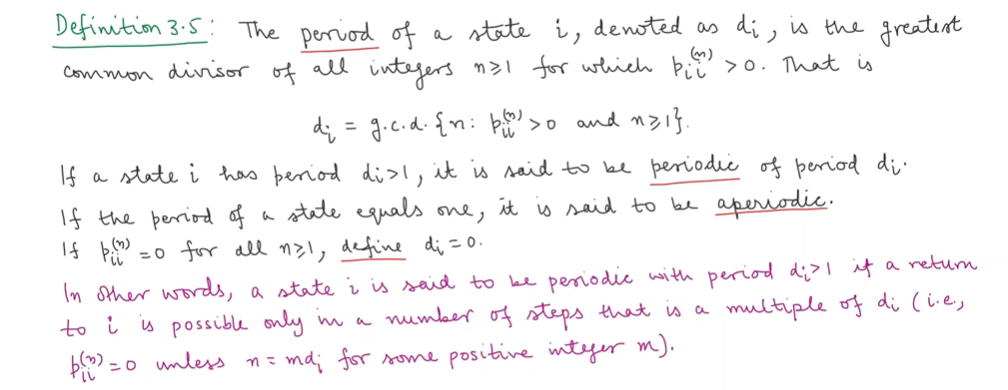 Definition 3.5: The period of a state i, denoted as dᵢ, is the greatest
common divisor of all integers n≥1 for which pᵢᵢ⁽ⁿ⁾ >0. That is
dᵢ = g.c.d. {n: pᵢᵢ⁽ⁿ⁾ >0 and n≥1}.
If a state i has period dᵢ>1, it is said to be periodic of period dᵢ.
If the period of a state equals one, it is said to be aperiodic.
If pᵢᵢ⁽ⁿ⁾ =0 for all n≥1, define dᵢ=0.
In other words, a state i is said to be periodic with period dᵢ>1 if a return
to i is possible only in a number of steps that is a multiple of dᵢ (i.e,
pᵢᵢ⁽ⁿ⁾ =0 unless n = mdᵢ for some positive integer m).